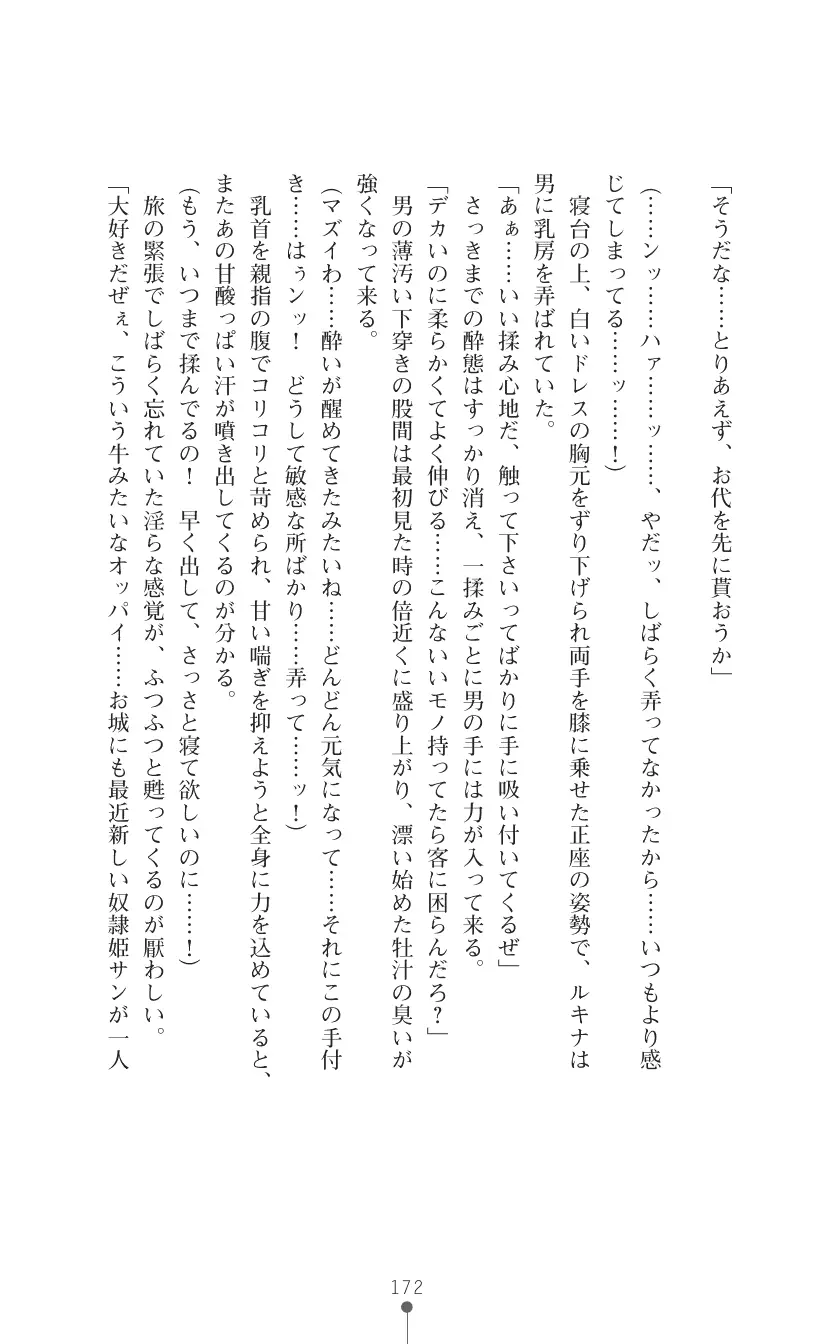 「そうだな……とりあえず、お代を先に貰おうか」
（……ンッ……ハァ……ッ……、やだッ、しばらく弄ってなかったから……いつもより感
じてしまってる……ッ……！）
寝台の上、白いドレスの胸元をずり下げられ両手を膝に乗せた正座の姿勢で、ルキナは
男に乳房を弄ばれていた。
「あぁ……いい揉み心地だ、触って下さいってばかりに手に吸い付いてくるぜ」
さっきまでの酔態はすっかり消え、一揉みごとに男の手には力が入って来る。
「デカいのに柔らかくてよく伸びる……こんないいモノ持ってたら客に困らんだろ？」
男の薄汚い下穿きの股間は最初見た時の倍近くに盛り上がり、漂い始めた牡汁の臭いが
強くなって来る。
（マズイわ……酔いが醒めてきたみたいね……どんどん元気になって……それにこの手付
き……はぅンッ！　どうして敏感な所ばかり……弄って……ッ！）
乳首を親指の腹でコリコリと苛められ、甘い喘ぎを抑えようと全身に力を込めていると、
またあの甘酸っぱい汗が噴き出してくるのが分かる。
（もう、いつまで揉んでるの！　早く出して、さっさと寝て欲しいのに……！）
旅の緊張でしばらく忘れていた淫らな感覚が、ふつふつと甦ってくるのが厭わしい。
「大好きだぜぇ、こういう牛みたいなオッパイ……お城にも最近新しい奴隷姫サンが一人
172